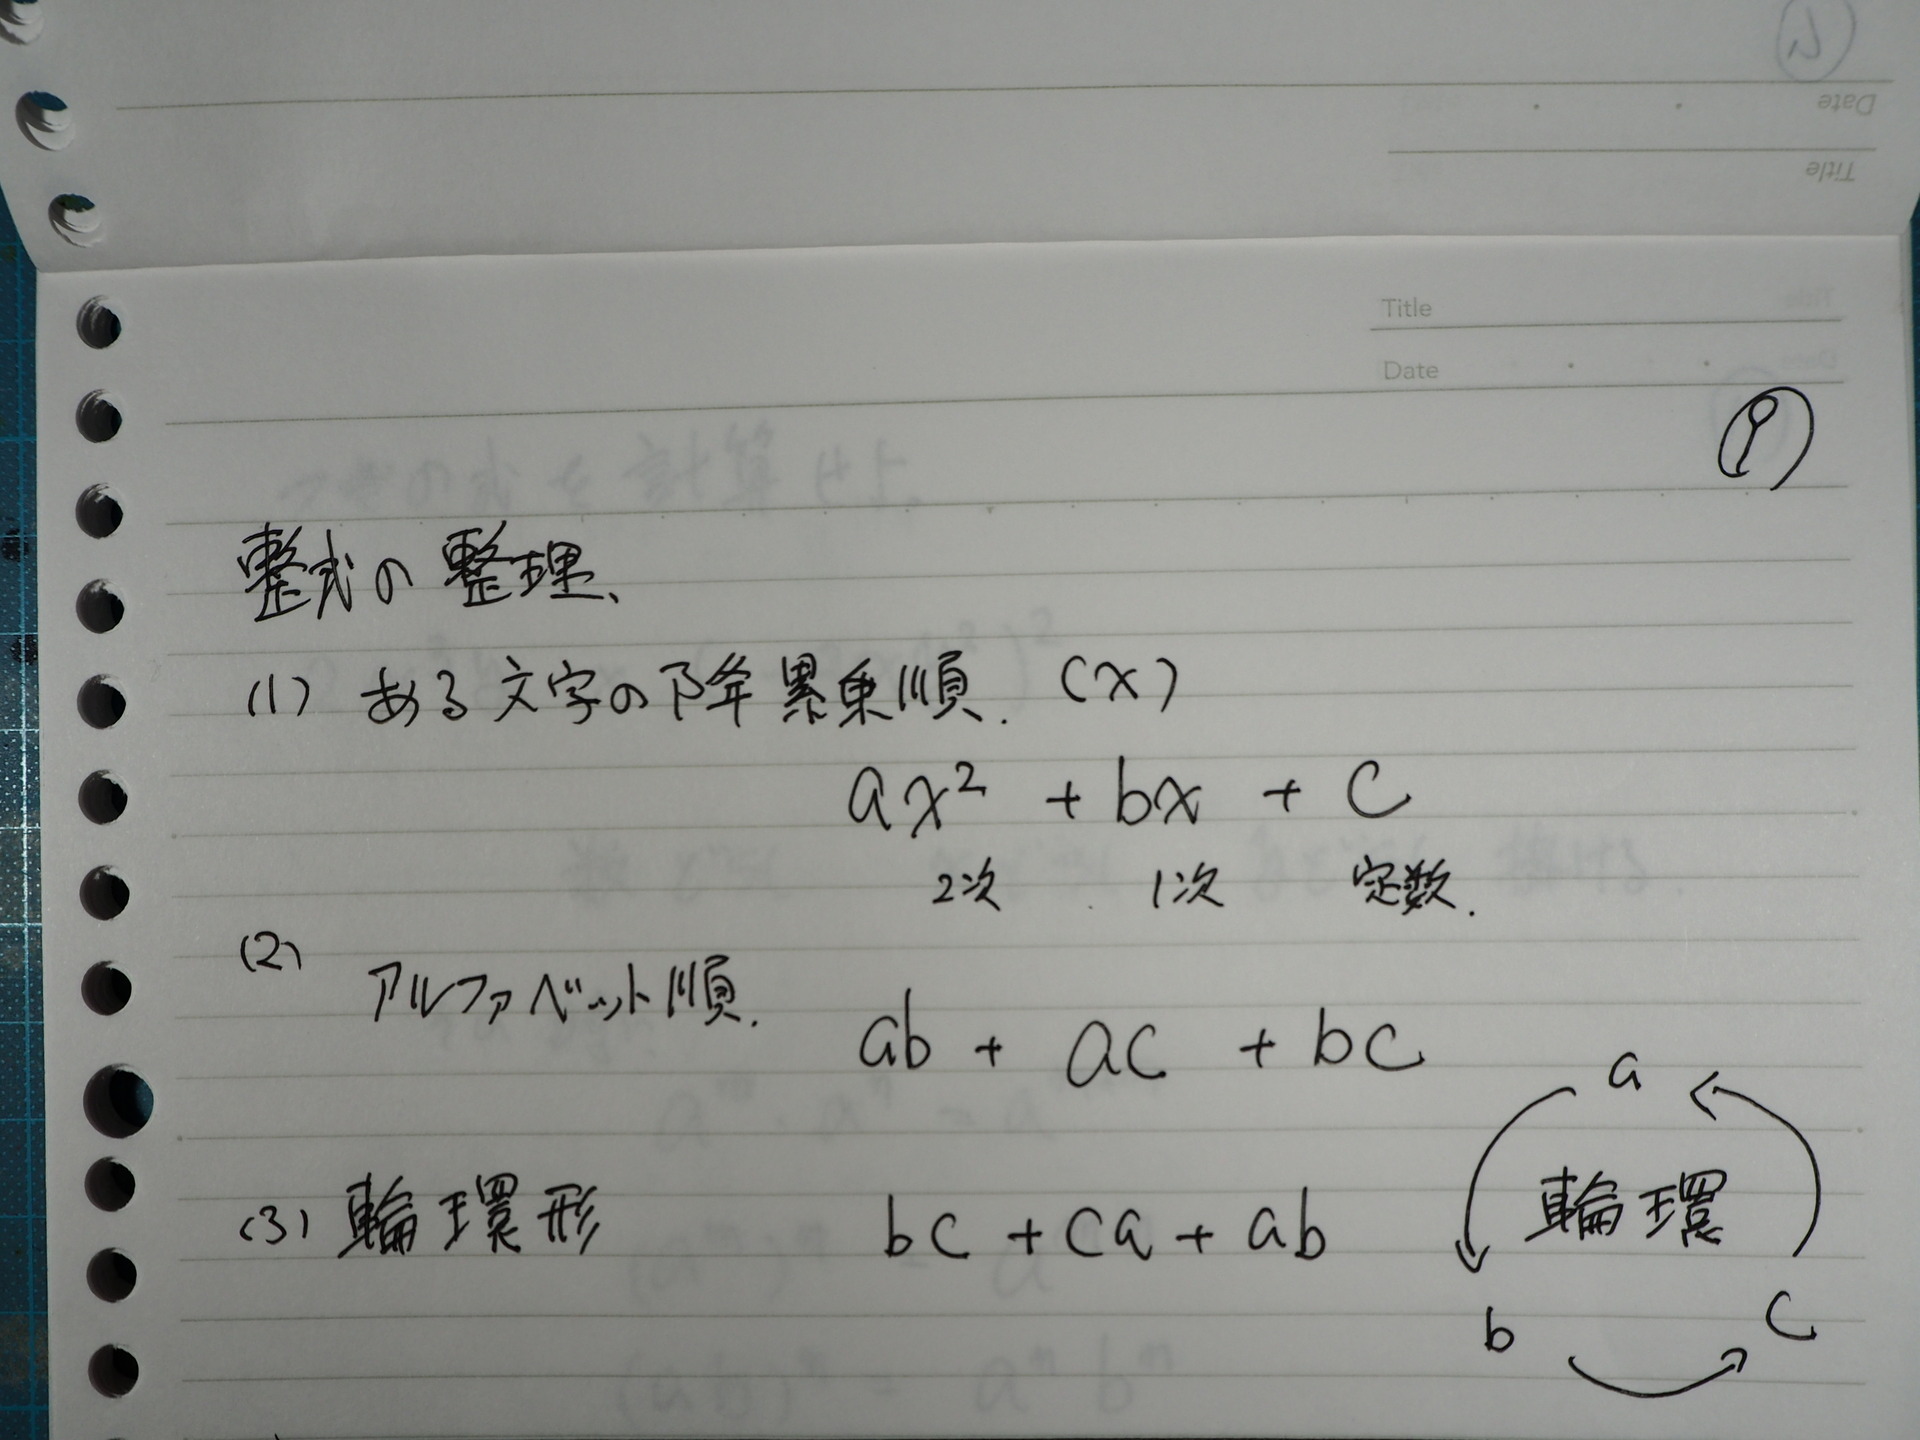 Date
Title
Title
Date
9
整式の整理、
(1) ある文字の降累乗順. (x)
ax² + bx + c
2次 1次 定数.
(2) アルファベット順. ab + ac + bc
(3) 輪環形 bc + ca + ab
a
輪環
b c